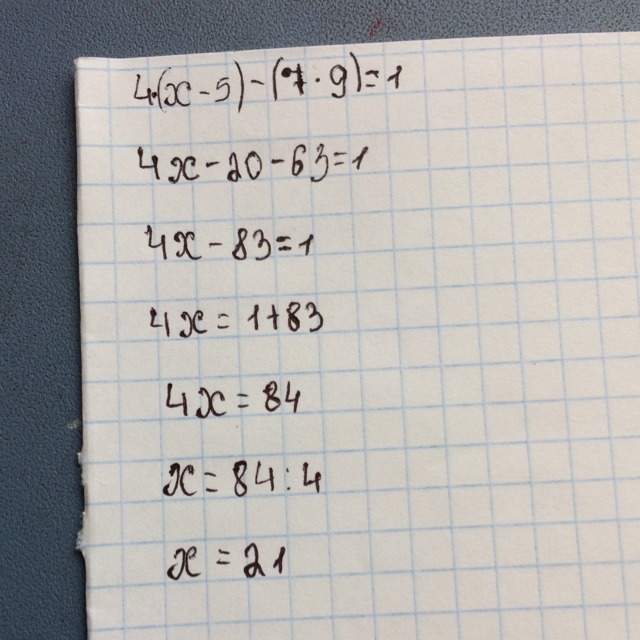 4(x-5)-(7·9)=1
4x-20-63=1
4x-83=1
4x=1+83
4x=84
x=84:4
x=21